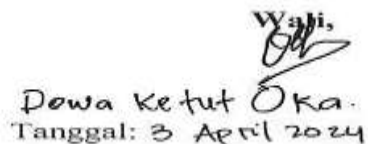 Wali,
Dewa Ketut Oka.
Tanggal: 3 April 2024